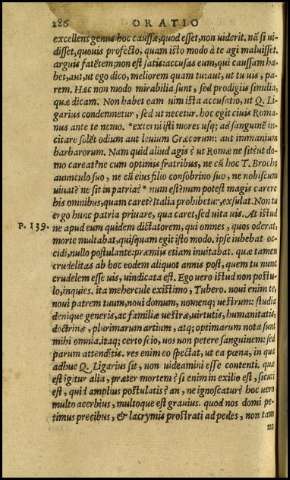 286 ORATIO
excellens genus hoc caussæ, quod esset, non uiderit. nã si ui-
disset, quouis profecto, quam isto modo à te agi maluisset.
arguis fatētem; non est satis: accusas eum, qui caussam ha-
bet, aut, ut ego dico, meliorem quam tu: aut, ut tu uis, pa-
rem. Hæc non modo mirabilia sunt, sed prodigij similia,
quæ dicam. Non habet eam uim ista accusatio, ut Q. Li-
garius condemnetur, sed ut necetur. hoc egit ciuis Roma-
nus ante te nemo. *externi isti mores usq; ad sanguinē in-
citare solēt odium aut leuium Græcorum: aut immanium
barbarorum. Nam quid aliud agis? ut Romæ ne sit? ut do-
mo careat? ne cum optimis fratribus, ne cū hoc T. Brocho
auunculo suo, ne cū eius filio consobrino suo, ne nobiscum
uiuat? ne sit in patria? *num est? num potest magis carere
his omnibus, quam caret? Italia prohibetur: exsulat. Non tu
ergo hunc patria priuare, qua caret, sed uita uis. At istud
P. 139. ne apud eum quidem dictatorem, qui omnes, quos oderat,
morte multabat, quisquam egit isto modo. ipse iubebat oc-
cidi, nullo postulante. præmijs etiam inuitabat. quæ tamen
crudelitas ab hoc eodem aliquot annis post, quem tu nunc
crudelem esse uis, uindicata est. Ego uero istud non postu-
lo, inques. ita mehercule existimo, Tubero. noui enim te,
noui patrem tuum, noui domum, nomenq; uestrum: studia
denique generis, ac familiæ uestræ, uirtutis, humanitatis,
doctrinæ, plurimarum artium, atq; optimarum nota sunt
mihi omnia. itaq; certo scio, uos non petere sanguinem: sed
parum attenditis. res enim eo spectat, ut ea pœna, in qua
adhuc Q. Ligarius sit, non uideamini esse contenti. quæ
est igitur alia, præter mortem? si enim in exilio est, sicuti
est, quid amplius postulatis? an, ne ignoscatur? hoc uero
multo acerbius, multoque est grauius. quod nos domi pe-
timus precibus, & lacrymis prostrati ad pedes, non tam